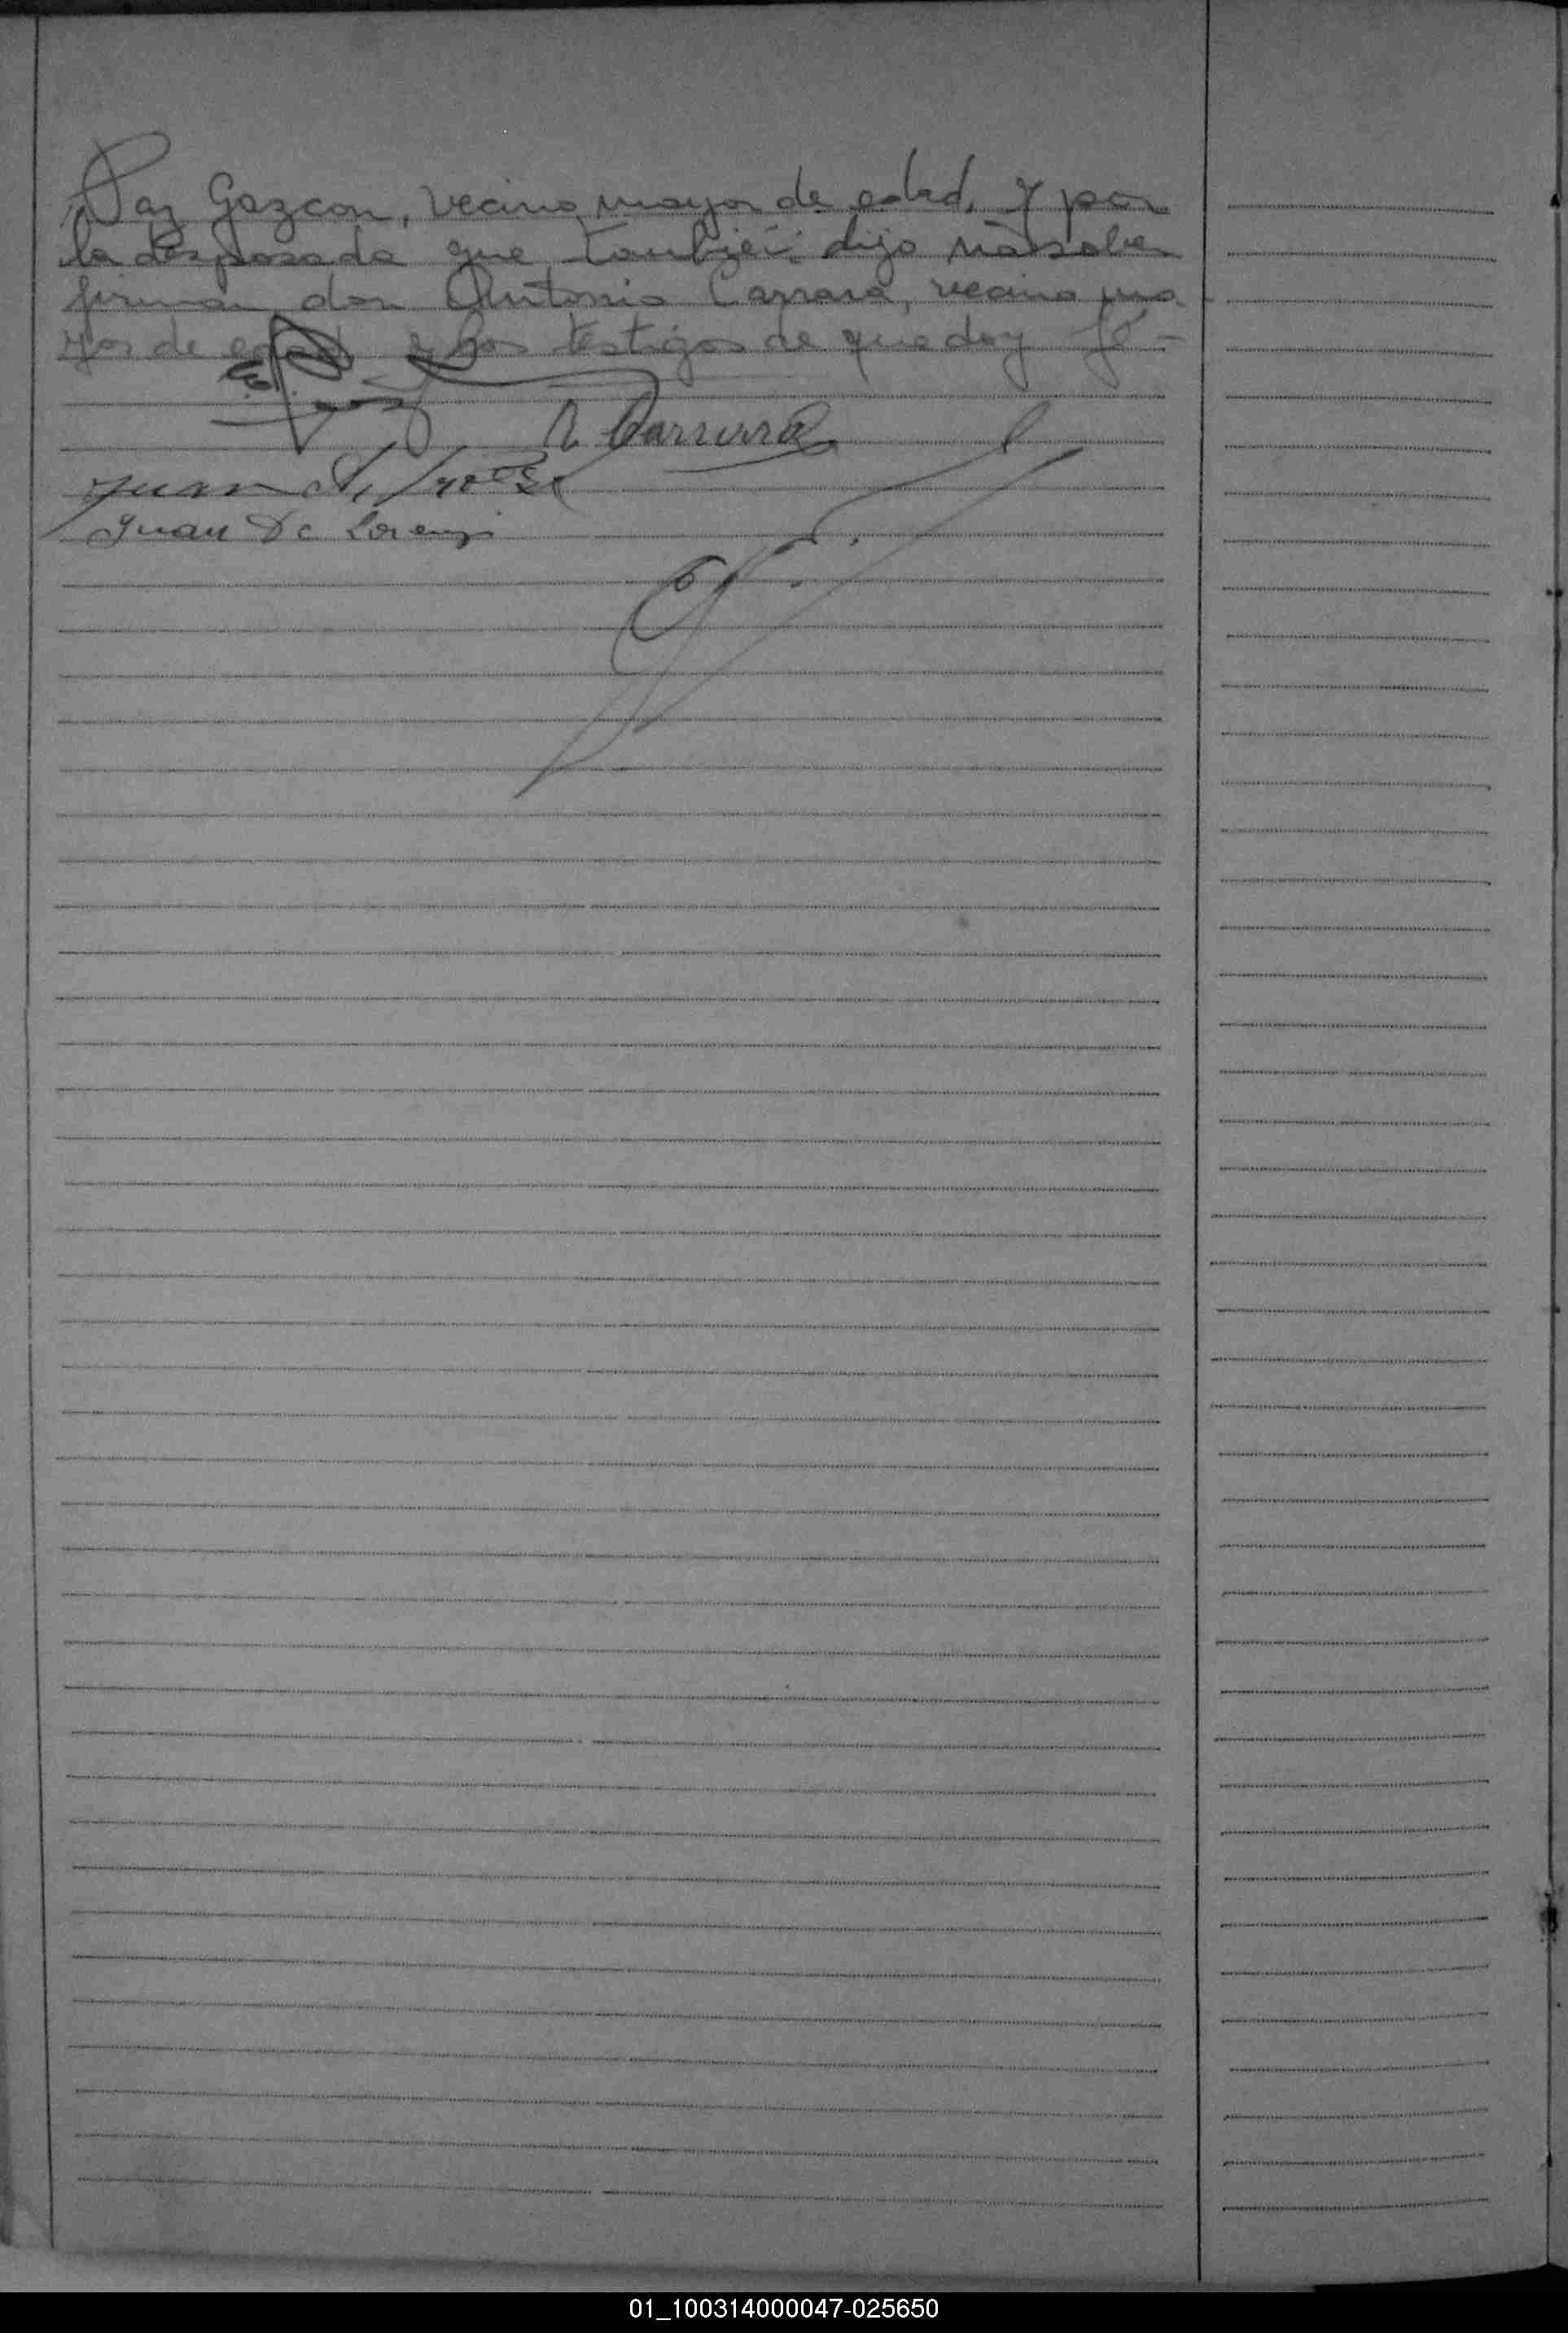 Paz Gazcon, vecino mayor de edad, y por
la desposada que también dijo no saber
firmar don Antonio Carrara, vecino ma
yor de edad y los testigos de que doy fé -
A Carrara
Juan
Juan De Lorenzi
01_100314000047-025650